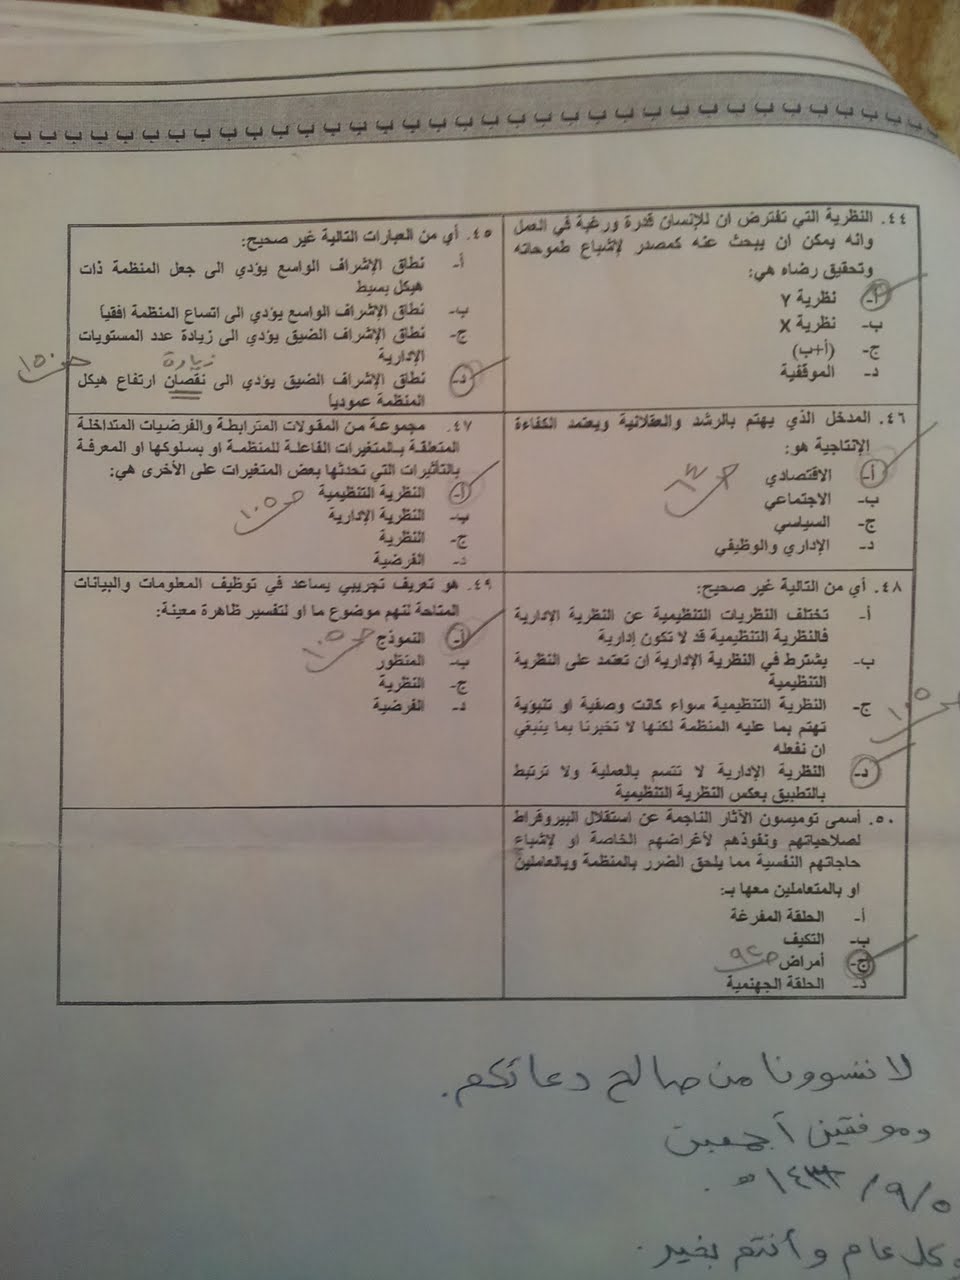 ب ب ب ب ب ب ب ب ب ب ب ب ب ب ب ب ب ب ب ب ب ب ب ب ب ب ب ب ب ب ب ب ب ب ب ب
٤٤. النظرية التي تفترض ان للإنسان قدرة ورغبة في العمل
وانه يمكن ان يبحث عنه كمصدر لإشباع طموحاته
وتحقيق رضاه هي:
أ- نظرية Y
ب- نظرية X
ج- (أ+ب)
د- الموقفية
٤٥. أي من العبارات التالية غير صحيح:
أ- نطاق الإشراف الواسع يؤدي الى جعل المنظمة ذات
هيكل بسيط
ب- نطاق الإشراف الواسع يؤدي الى اتساع المنظمة افقياً
ج- نطاق الإشراف الضيق يؤدي الى زيادة عدد المستويات
الإدارية
زيادة
ص١٥٠
د- نطاق الإشراف الضيق يؤدي الى نقصان ارتفاع هيكل
المنظمة عمودياً
٤٦. المدخل الذي يهتم بالرشد والعقلانية ويعتمد الكفاءة
الإنتاجية هو:
أ- الاقتصادي
ب- الاجتماعي
ج- السياسي
د- الإداري والوظيفي
٤٧. مجموعة من المقولات المترابطة والفرضيات المتداخلة
المتعلقة بالمتغيرات الفاعلة للمنظمة او بسلوكها او المعرفة
بالتأثيرات التي تحدثها بعض المتغيرات على الأخرى هي:
أ- النظرية التنظيمية
ب- النظرية الإدارية
ص١٠٥
ج- النظرية
د- الفرضية
٤٨. أي من التالية غير صحيح:
أ- تختلف النظريات التنظيمية عن النظرية الإدارية
فالنظرية التنظيمية قد لا تكون إدارية
ب- يشترط في النظرية الإدارية ان تعتمد على النظرية
التنظيمية
ج- النظرية التنظيمية سواء كانت وصفية او تنبؤية
تهتم بما عليه المنظمة لكنها لا تخبرنا بما ينبغي
ان نفعله
ص١٠٥
د- النظرية الإدارية لا تتسم بالعملية ولا ترتبط
بالتطبيق بعكس النظرية التنظيمية
٤٩. هو تعريف تجريبي يساعد في توظيف المعلومات والبيانات
المتاحة لفهم موضوع ما او لتفسير ظاهرة معينة:
أ- النموذج ص١٠٥
ب- المنظور
ج- النظرية
د- الفرضية
٥٠. أسمى تومبسون الأثار الناجمة عن استقلال البيروقراط
لصلاحياتهم ونفوذهم لأغراضهم الخاصة او لإشباع
حاجاتهم النفسية مما يلحق الضرر بالمنظمة وبالعاملين
او بالمتعاملين معها بـ:
أ- الحلقة المفرغة
ب- التكيف
ج- أمراض
د- الحلقة الجهنمية
لا تنسوونا من صالح دعائكم.
وموفقين أجمعين
٥/٩/١٤٣٣ هـ.
كل عام وأنتم بخير.